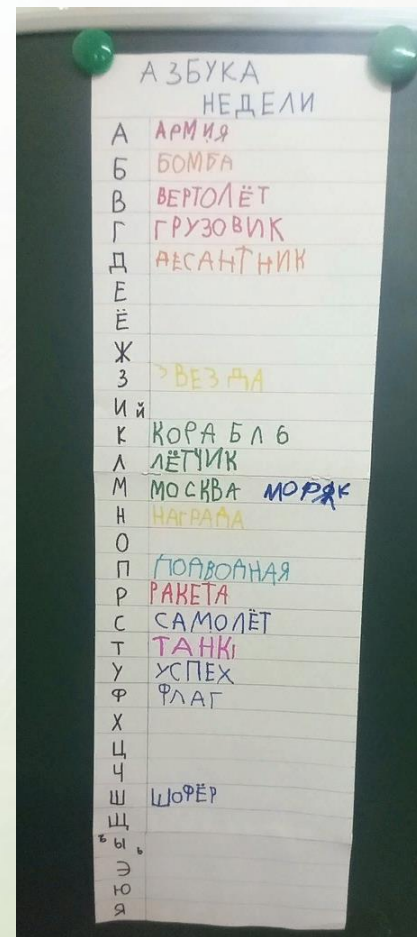 АЗБУКА
НЕДЕЛИ
А АРМИЯ
Б БОМБА
В ВЕРТОЛЁТ
Г ГРУЗОВИК
Д ДЕСАНТНИК
Е
Ё
Ж
З ЗВЕЗДА
И й
К КОРАБЛ6
Л ЛЁТЧИК
М МОСКВА МОРЯК
Н НАГРАДА
О
П ПОДВОДНАЯ
Р РАКЕТА
С САМОЛЁТ
Т ТАНКІ
У УСПЕХ
Ф ФЛАГ
Х
Ц
Ч
Ш ШОФЁР
Щ
ъ ы ь
Э
Ю
Я